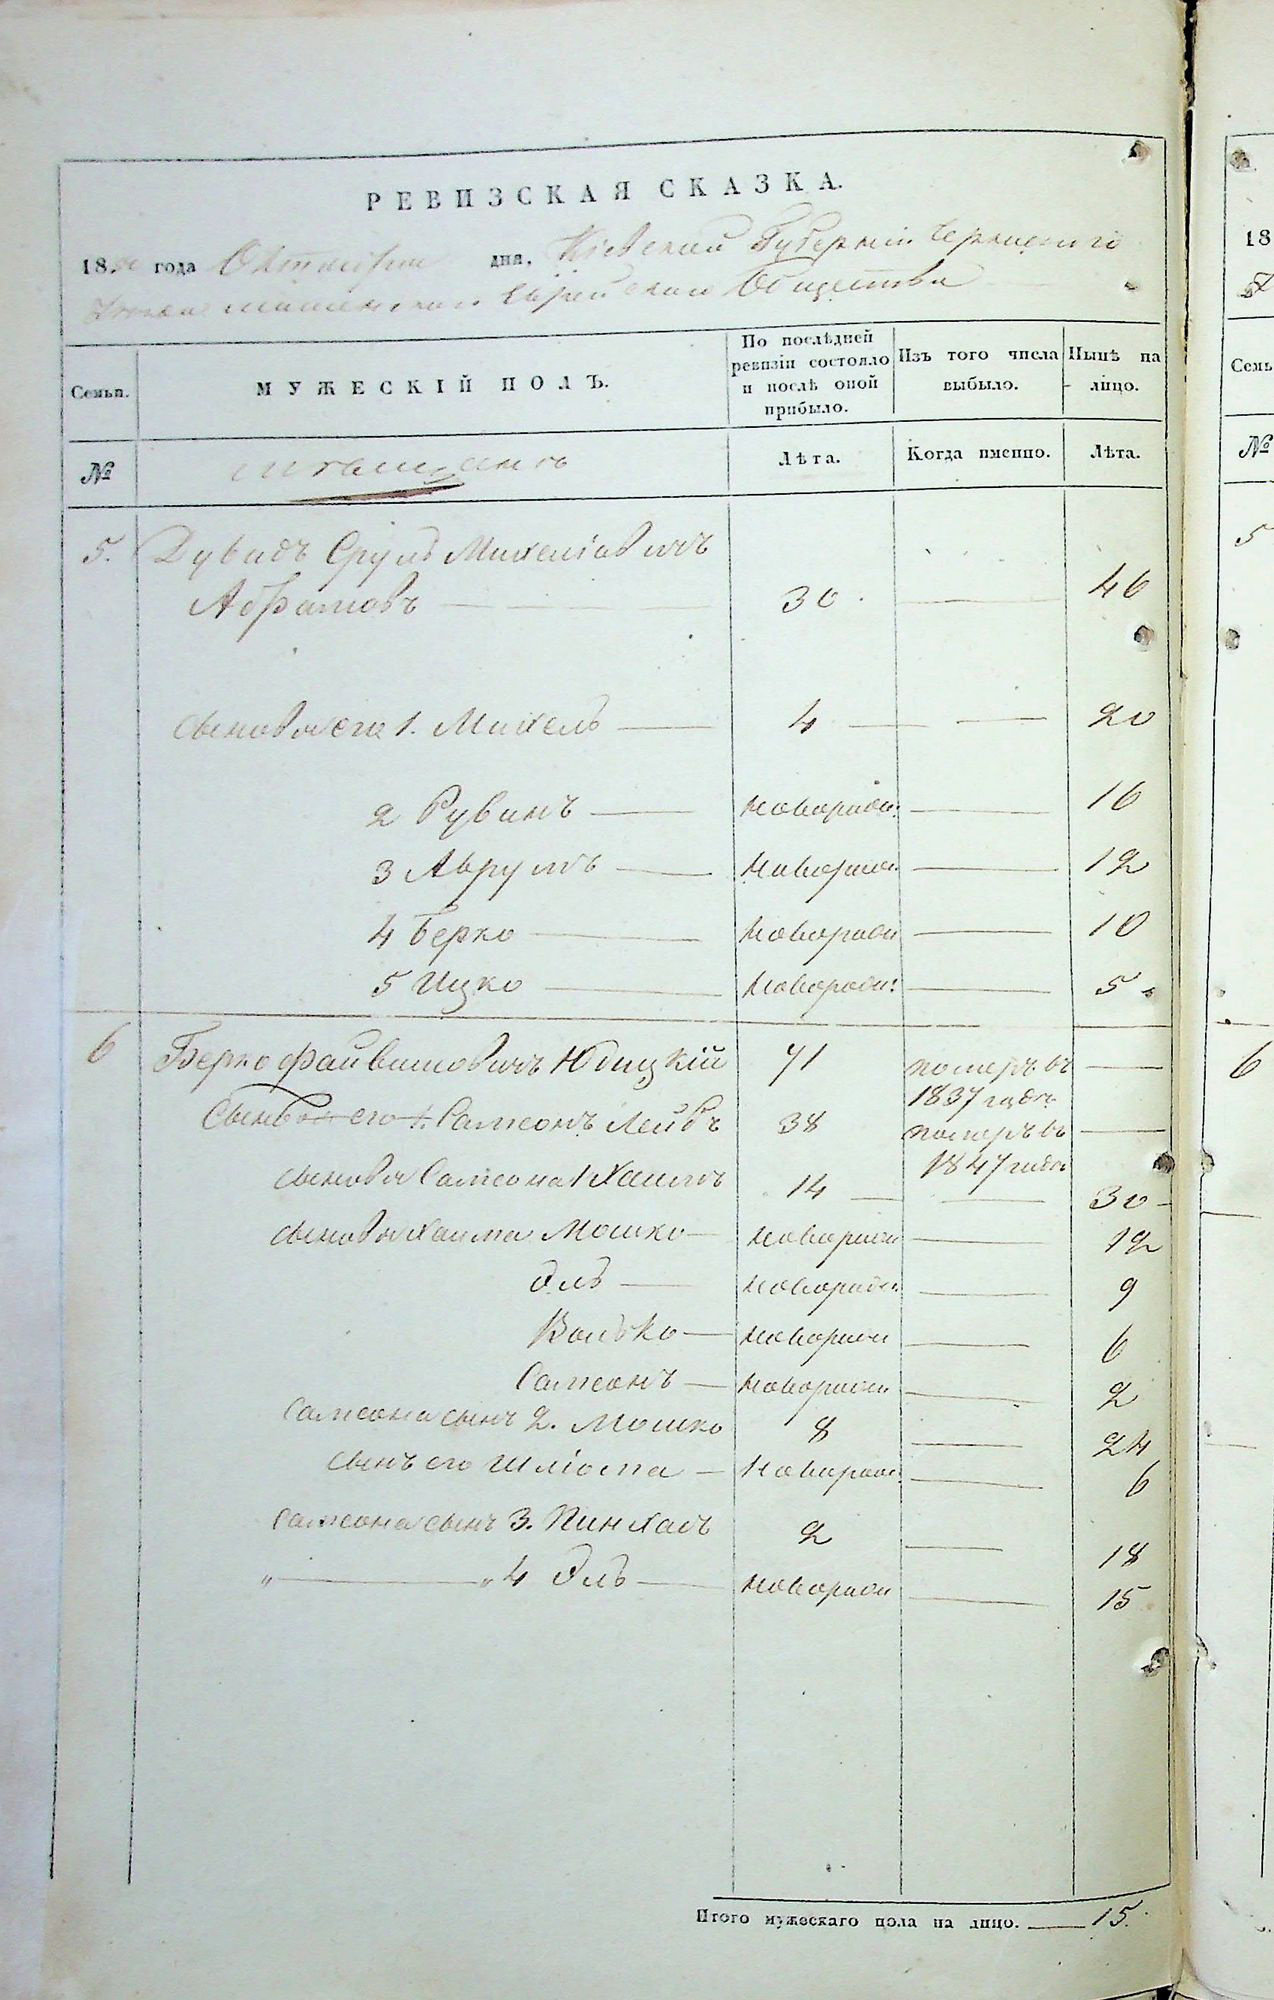 РЕВИЗСКАЯ СКАЗКА.
1850 года Октября дня, Кіевской Губерніи
Еврейскаго Общества
Семьи.
МУЖЕСКІЙ ПОЛЪ.
По послѣдней
ревизіи состояло
и послѣ оной
прибыло.
Изъ того числа
выбыло.
Нынѣ на
лицо.
№
мѣщанъ
Лѣта.
Когда именно.
Лѣта.
5. Дувидъ Сруль Михелiовичъ
Абрамовъ 30 46
сыновья его 1. Михель 4 20
2 Рувинъ новорожд: 16
3 Аврумъ новорожд 12
4 Берко новорожд 10
5 Ицко новорожд: 5
6 Берко Файвишовичъ Юдицкій 71 померъ въ
1837 годѣ
Сынъ его 1. Самсонъ Лейбъ 38 померъ въ
1847 годѣ
сыновья Самсона 1 Хаимъ 14 30
сыновья Хаима Мошко новорожд 12
Эль новорожд: 9
Волько новорожд 6
Самсонъ новорожд 2
Самсона сынъ 2. Мошко 8 24
сынъ его Шліома новорожд: 6
Самсона сынъ 3. Пинхасъ 2 18
" " 4 Эль новорожд 15
Итого мужескаго пола на лицо. 15.
18
Семь
№
5
6